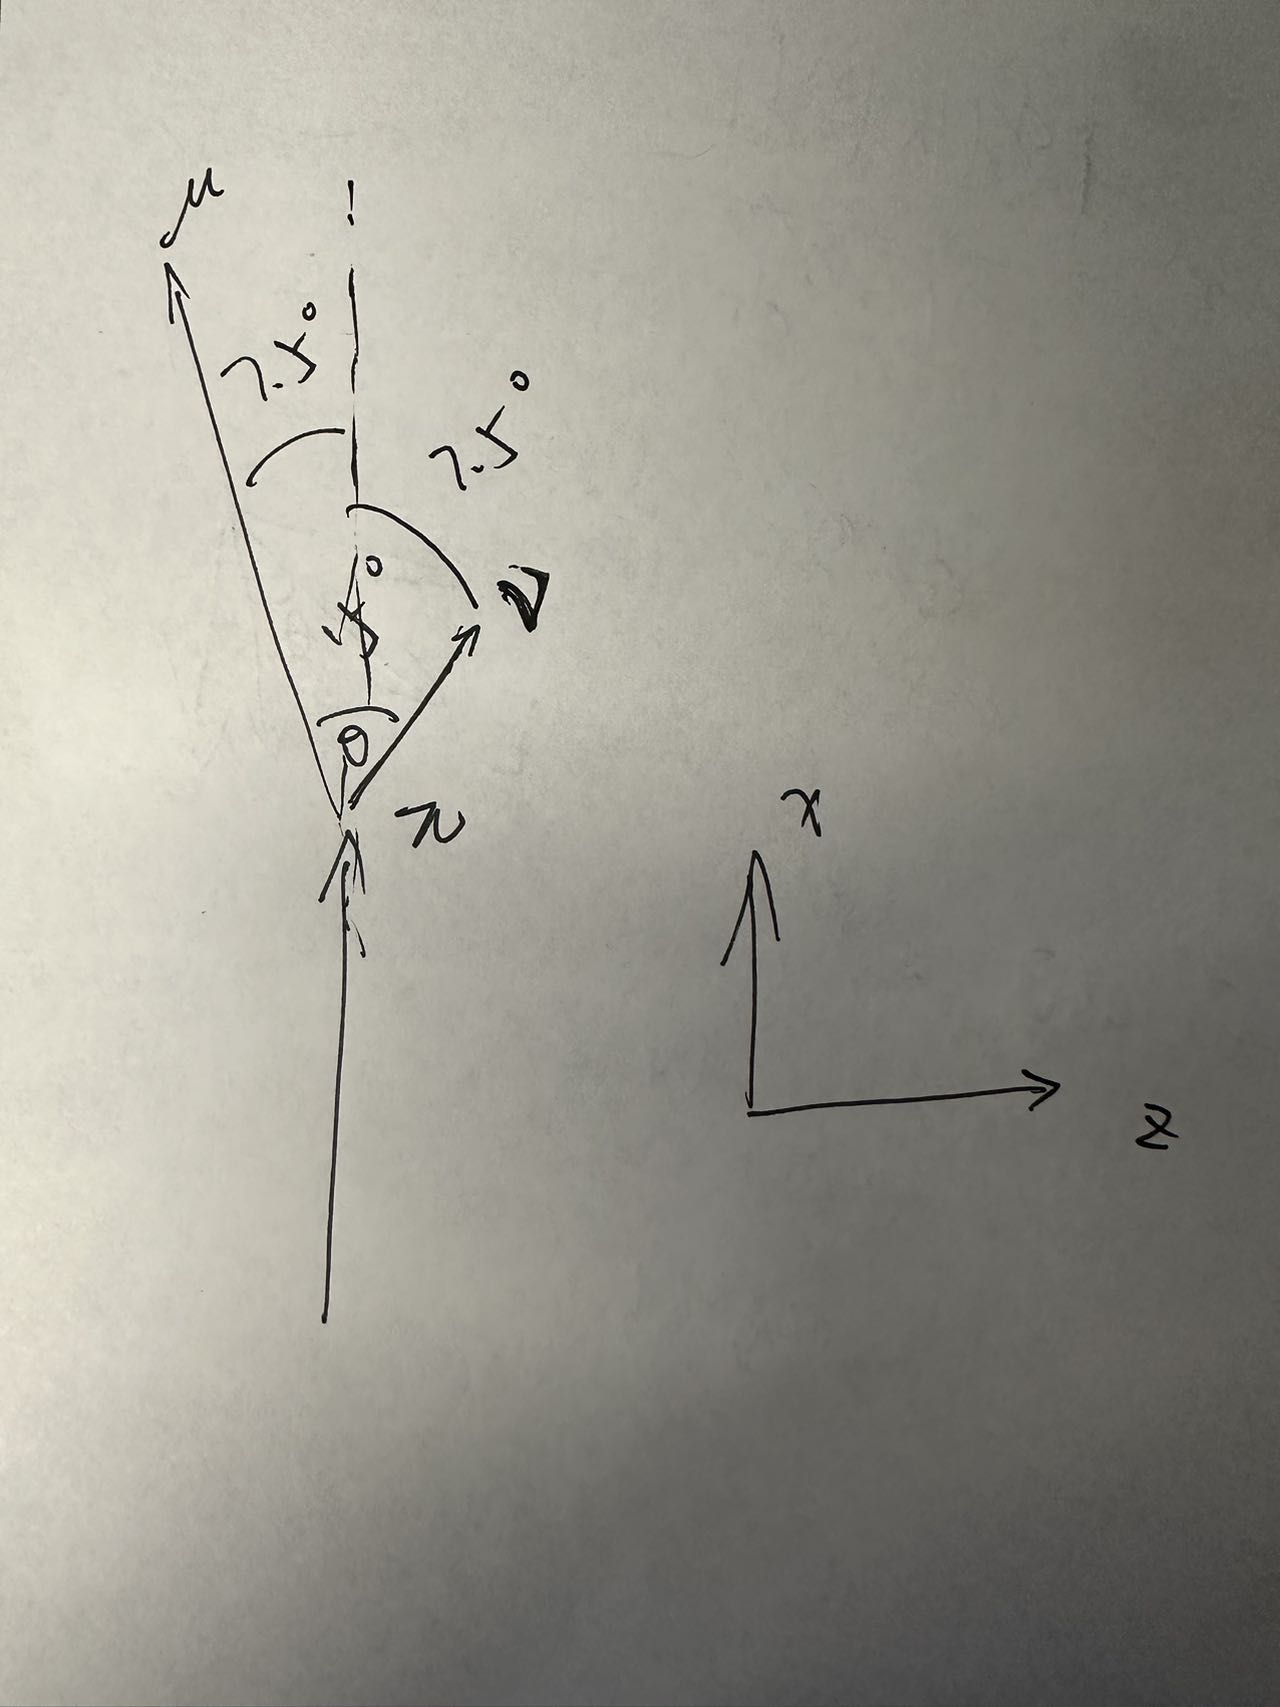 μ
7.5°
7.5°
15°
ν
θ
π
x
z